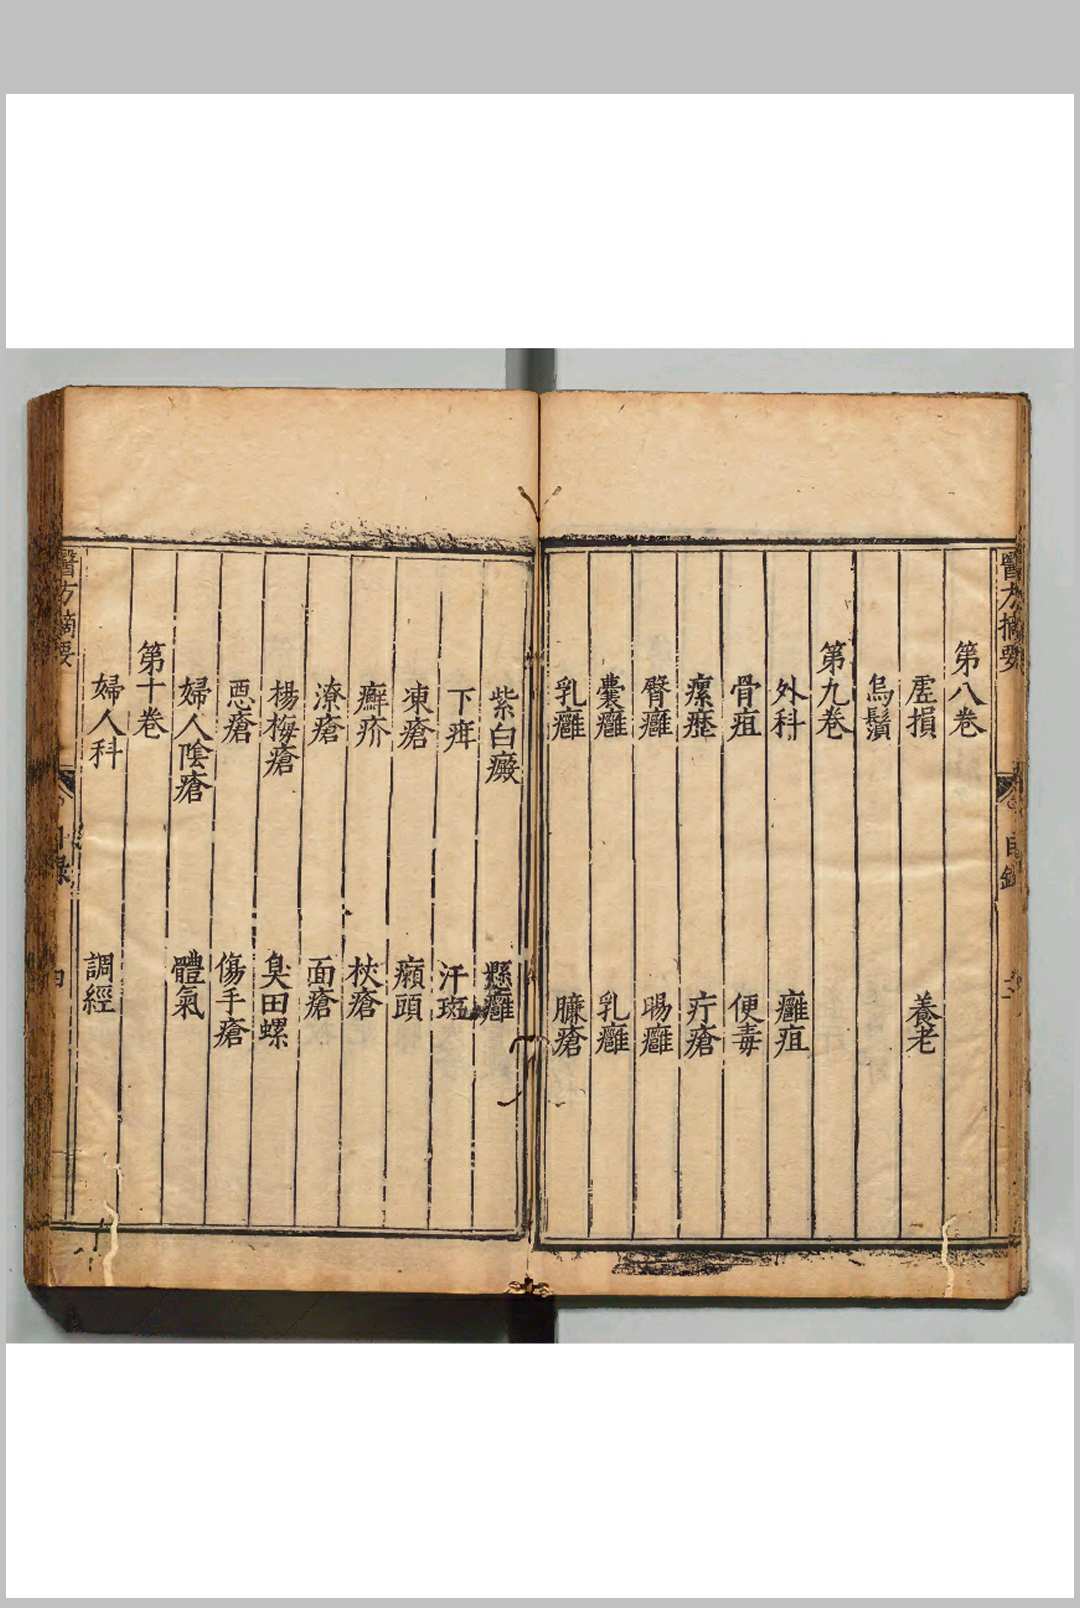 醫方摘要
目錄
第八卷
虛損 養老
烏鬚
第九卷
外科 癰疽
骨疽 便毒
瘰癧 疔瘡
臀癰 腸癰
囊癰 乳癰
乳癰 臁瘡
紫白癜 懸癰
下疳 汗斑
凍瘡 癩頭
癬疥 杖瘡
潦瘡 面瘡
楊梅瘡 臭田螺
惡瘡 傷手瘡
婦人陰瘡 體氣
第十卷
婦人科 調經
醫方摘要
目錄
四